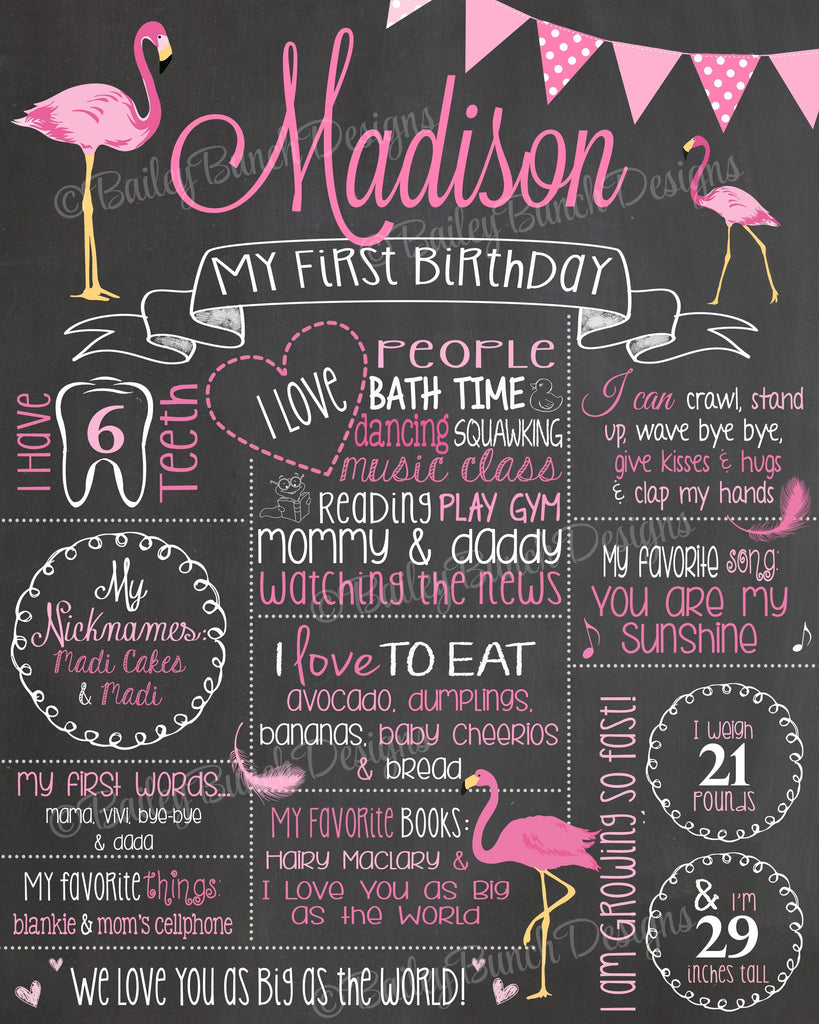 Madison
MY FIRST BIRTHDAY
I HAVE
6
TEETH
I LOVE
PEOPLE
BATH TIME
dancing SQUAWKING
music class
READING PLAY GYM
MOMMY & DADDY
WATCHING THE NEWS
I can crawl, stand
up, wave bye bye,
give kisses & hugs
& clap my hands
My
Nicknames:
Madi Cakes
& Madi
MY FAVORITE song:
YOU ARE MY
SUNSHINE
I love TO EAT
AVOCADO, DUMPLINGS,
BANANAS, BABY CHEERIOS
& BREAD
MY FIRST WORDS...
MAMA, VIVI, BYE-BYE
& DADA
MY FAVORITE things:
blankie & mom's cellphone
MY FAVORITE BOOKS:
HAIRY MACLARY &
I LOVE YOU AS BIG
AS THE WORLD
I AM GROWING SO FAST!
I WEIGH
21
POUNDS
& I'M
29
INCHES TALL
WE LOVE YOU AS BIG AS THE WORLD!
©BaileyBunchDesigns
©BaileyBunchDesigns
©BaileyBunchDesigns
©BaileyBunchDesigns
©BaileyBunchDesigns